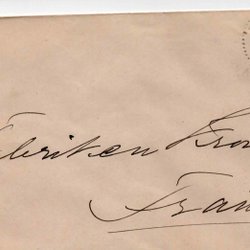 abriken Kro
Fran